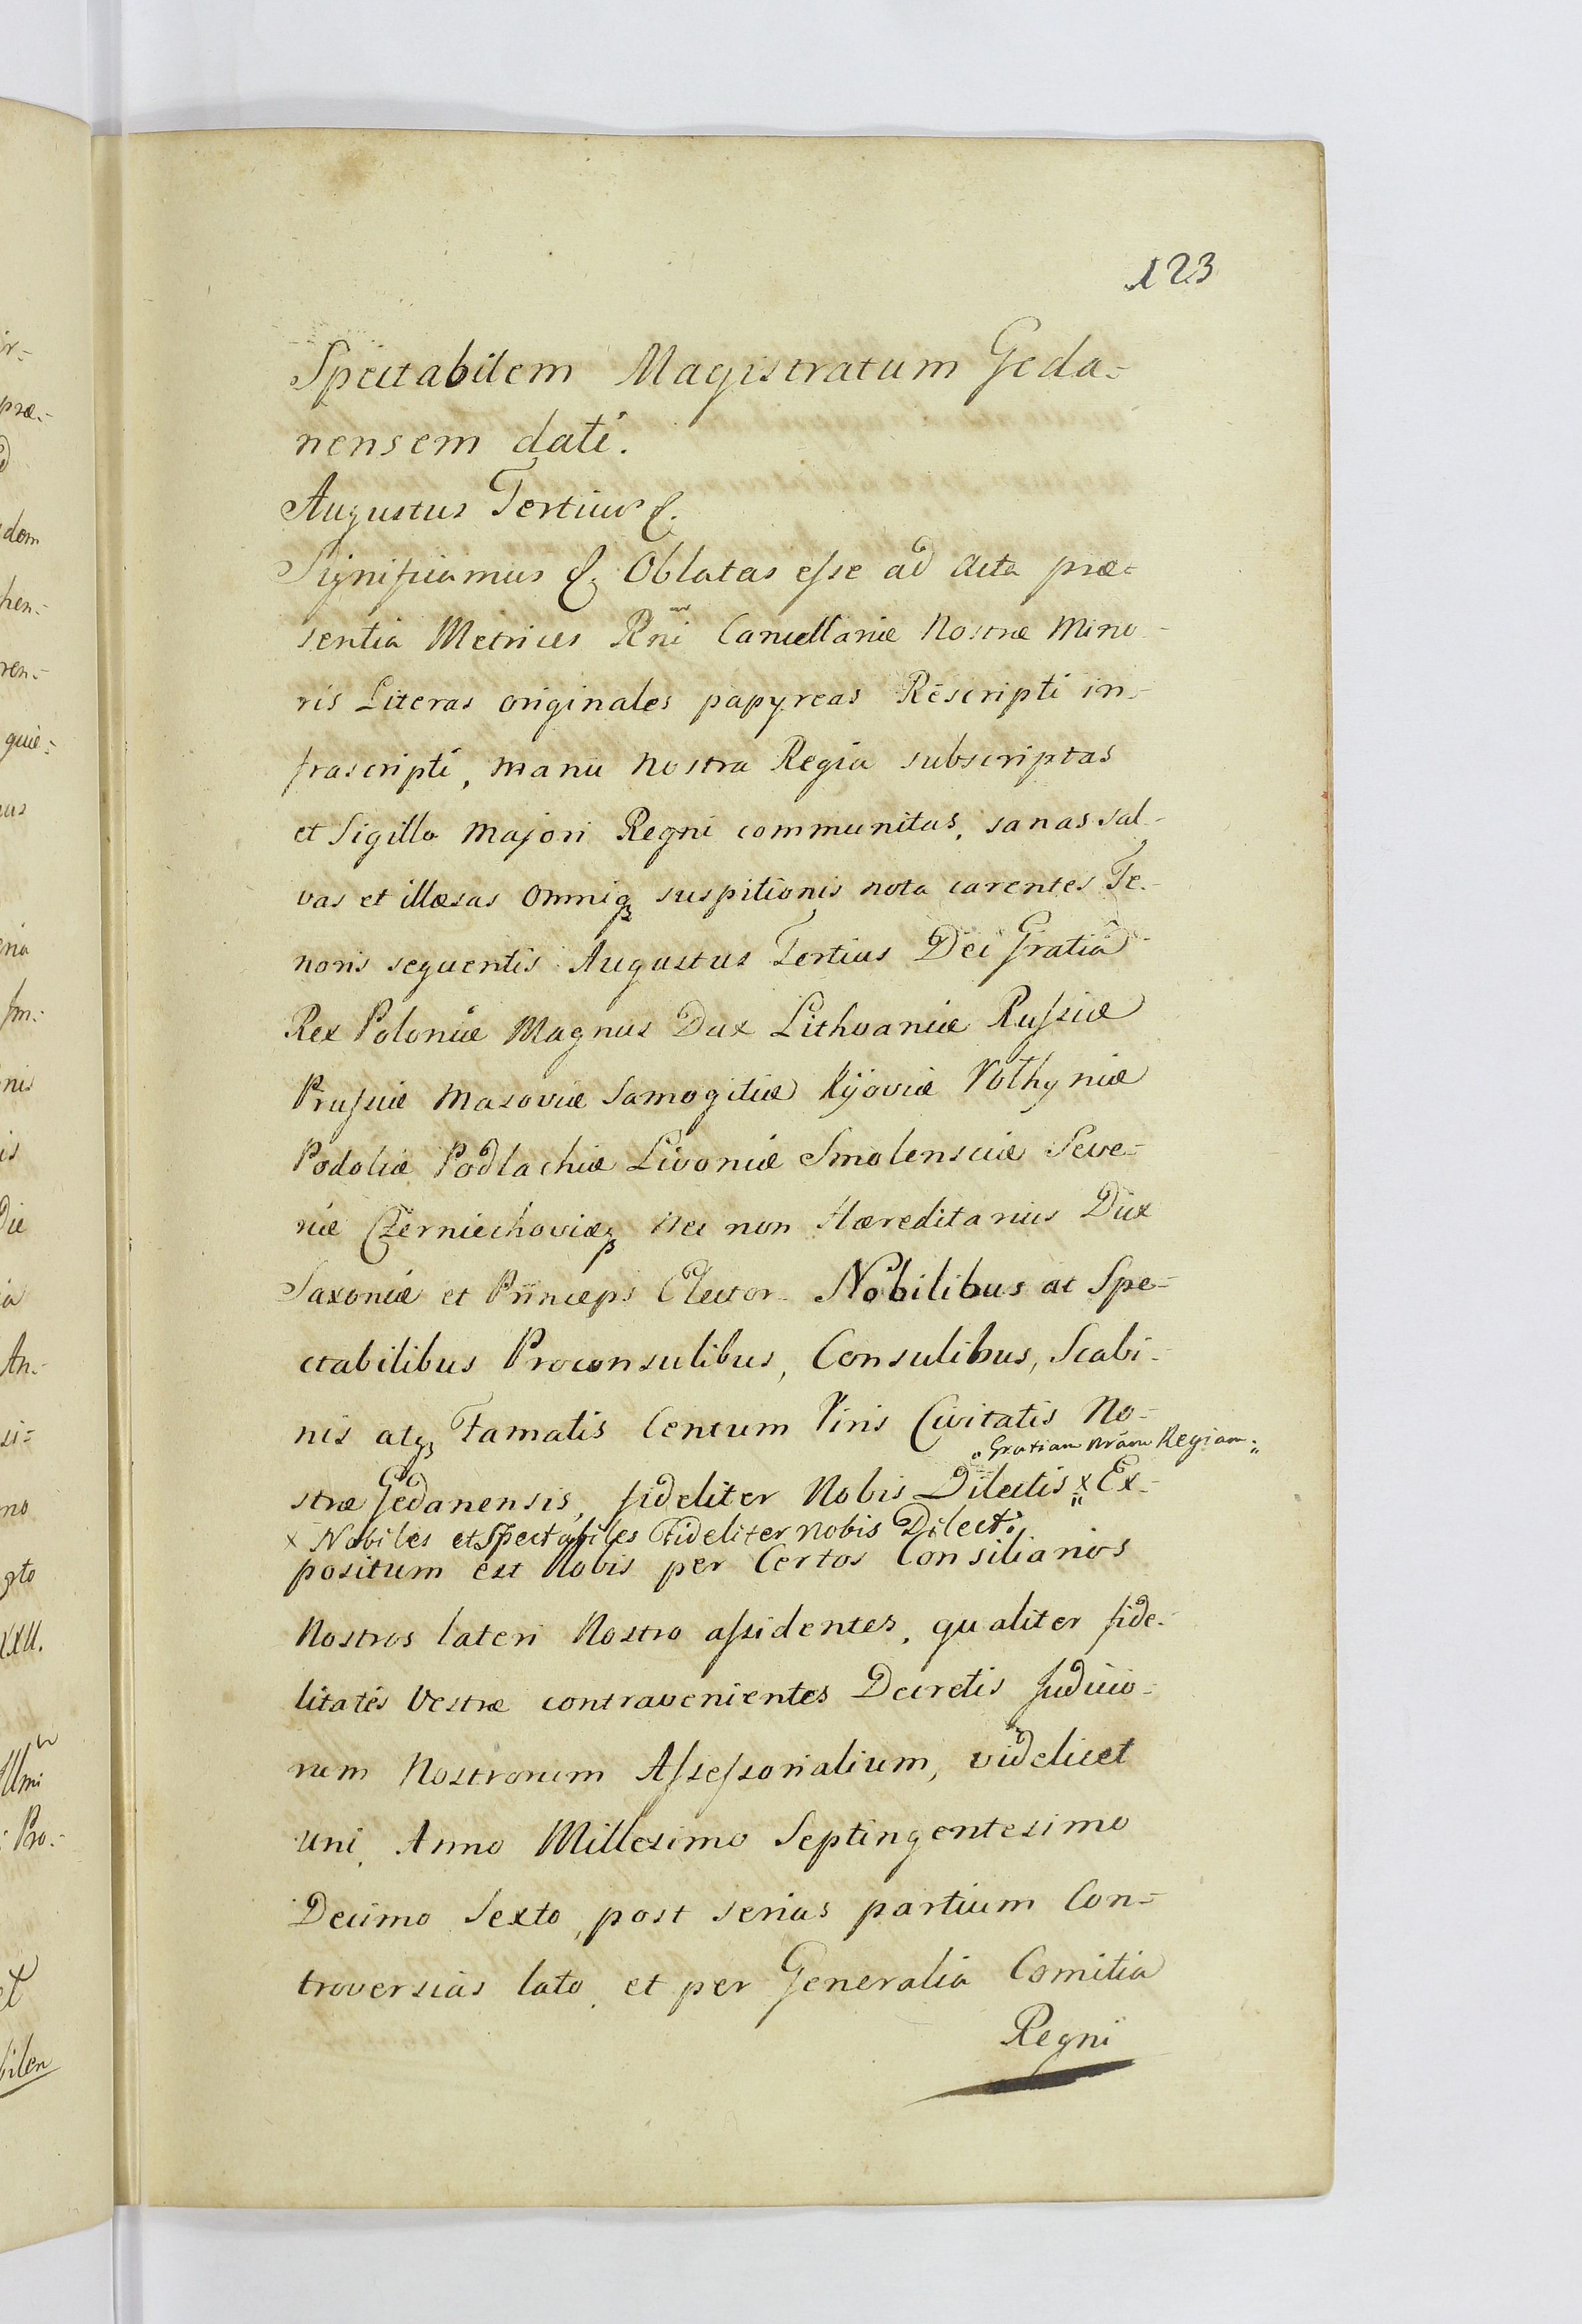 123
Spectabilem Magistratum Geda=
nensem dati.
Augustus Tertius &.
Significamus &. Oblatas esse ad Acta præ=
sentia Metrices Rñi Cancellariæ Nostræ Mino-
ris Literas originales papyreas Rescripti in-
frascripti, manu Nostra Regia subscriptas
et Sigillo Majori Regni communitas, sanas sal-
vas et illæsas Omniq3 suspitionis nota carentes Te-
noris sequentis Augustus Tertius Dei Gratia
Rex Poloniæ Magnus Dux Lithvaniæ Russiæ
Prussiæ Masoviæ Samogitiæ Kijoviæ Volhyniæ
Podoliæ Podlachiæ Livoniæ Smolensciæ Seve-
riæ Czerniechoviæq3 nec non Hæreditarius Dux
Saxoniæ et Princeps Elector. Nobilibus ac Spe-
ctabilibus Proconsulibus, Consulibus, Scabi-
nis atq3 Famatis Centum Viris Civitatis No-
„ Gratiam nrãm Regiam. „
stræ Gedanensis, fideliter Nobis Dilectis x Ex-
x Nobiles et Spectabiles Fideliter nobis Dilecti
positum est Nobis per Certos Consiliarios
Nostros lateri Nostro assidentes, qualiter fide-
litatis Vestræ contravenientes Decretis Judicio-
rum Nostrorum Assessorialium, videlicet
uni, Anno Millesimo Septingentesimo
Decimo Sexto, post serias partium Con=
troversias lato, et per Generalia Comitia
Regni
ir-
præ-
dem
hen-
ren-
quie-
nus
eria
Im-
nis
is
Die
ia
An-
si=
no
gto
XXII.
Illmi
Pro-
et
bilem